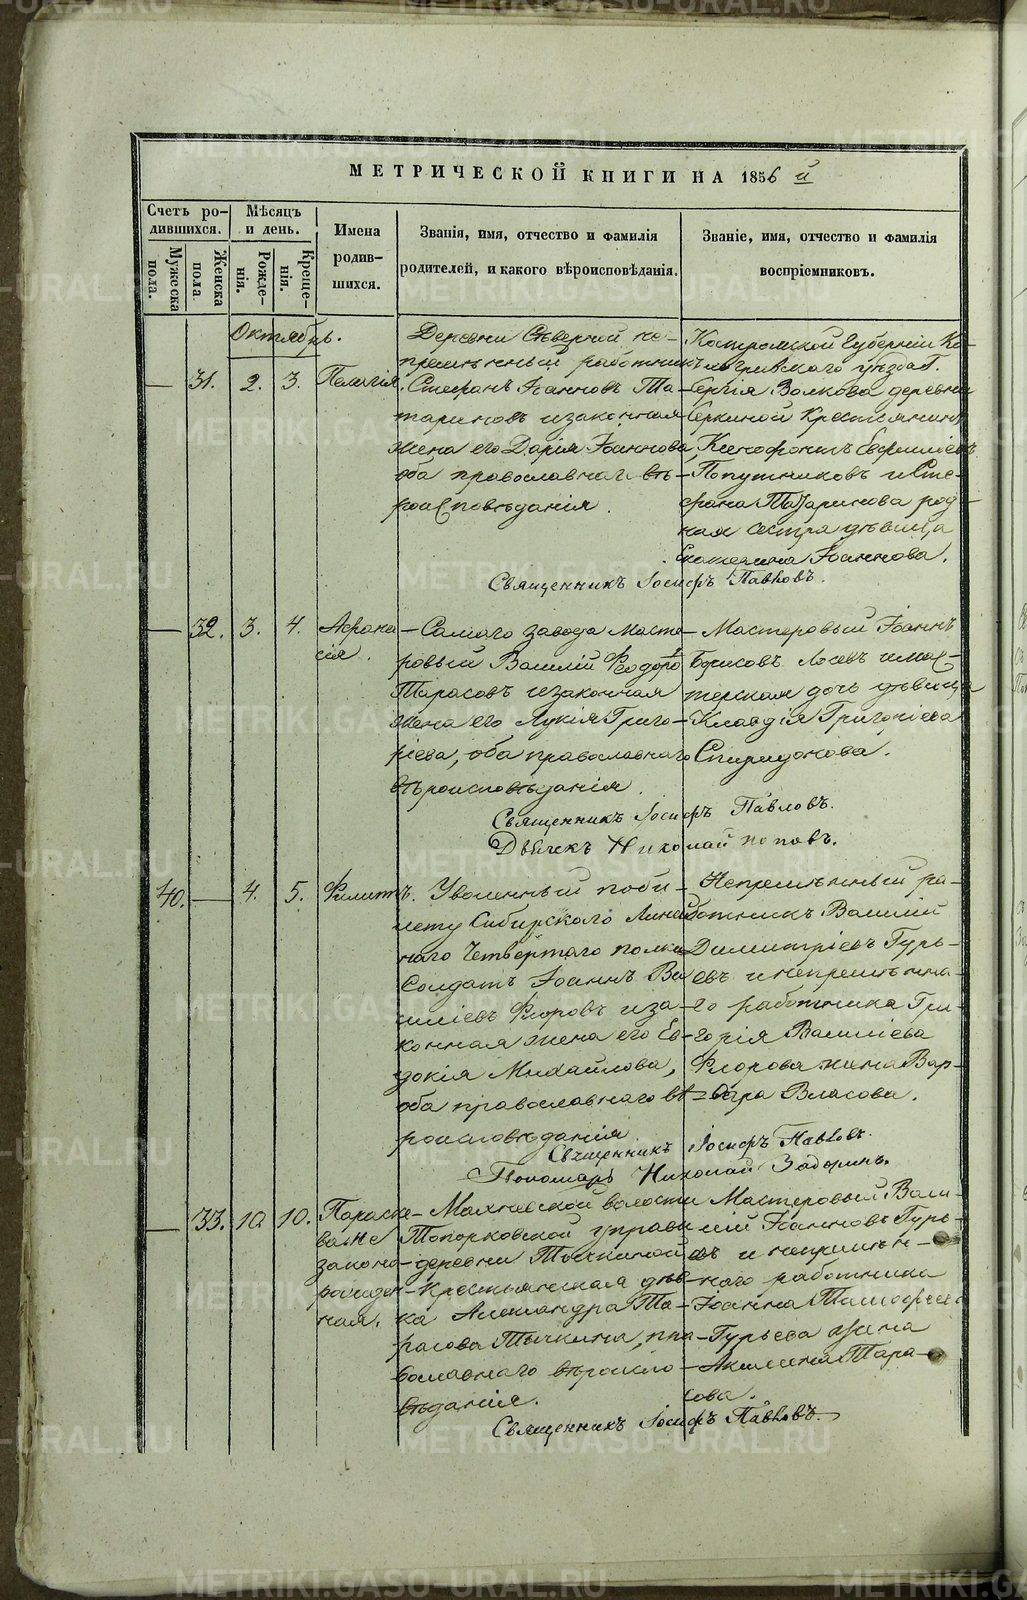 МЕТРИЧЕСКОЙ КНИГИ НА 1856 й
Счетъ ро-
дившихся.
Мужеска
пола.
Женска
пола
Мѣсяцъ
и день.
Рожде-
нія.
Креще-
нія.
Имена
родив-
шихся.
Званія, имя, отчество и фамилія
родителей, и какого вѣроисповѣданія.
Званіе, имя, отчество и фамилія
воспріемниковъ.
Октябрь.
31. 2. 3. Пелагія.
Деревни Сѣверной не-
премѣнный работникъ
Стефанъ Іоанновъ Та-
тариновъ и законная
жена его Дарія Іоаннова
оба православнаго вѣ-
роисповѣданія.
Костромской Губерніи Ко-
логривскаго уѣзда Г.
Сергія Волкова деревни
крестьянинъ
Ксенофонтъ
Попутниковъ и Сте-
фана Татаринова род-
ная сестра дѣвица
Екатерина Іоаннова.
Священникъ Іосифъ Павловъ.
32. 3. 4. Афана-
сія.
Самаго завода Масте-
ровый Василій Феодоро
Тарасовъ и законная
жена его Лукія Григо-
ріева, оба православнаго
вѣроисповѣданія.
Мастеровый Іоаннъ
Борисовъ Лосевъ и мас-
терская дочь дѣвица
Клавдія Григоріева
Спиридонова.
Священникъ Іосифъ Павловъ.
Дьячекъ Николай Поповъ.
40. 4. 5. Филиппъ.
Уволенный по би-
лету Сибирскаго Линей
наго Четвертаго полка
Солдатъ Іоаннъ Ва
силіевъ Флоровъ и за-
конная жена его Ев-
докія Михайлова,
оба православнаго вѣ-
роисповѣданія
Непремѣнный ра-
ботникъ Василій
Димитріевъ Гурь-
евъ и непремѣнна-
го работника Гри-
горія Василіева
Флорова жена Вар-
вара Власова.
Священникъ Іосифъ Павловъ.
Пономарь Николай Задоринъ.
33. 10. 10. Параске-
ва не
законо-
рожден-
ная.
Махневской волости
Топорковской управы
деревни Тычкиной
крестьянская дѣв-
ка Александра Та-
расова Тычкина, пра-
вославнаго вѣроиспо-
вѣданія.
Мастеровый Васи-
лій Іоанновъ Гурь-
евъ и непремѣн-
наго работника
Іоанна Тимофеева
Гурьева жена
Акилина Тара-
сова.
Священникъ Іосифъ Павловъ.